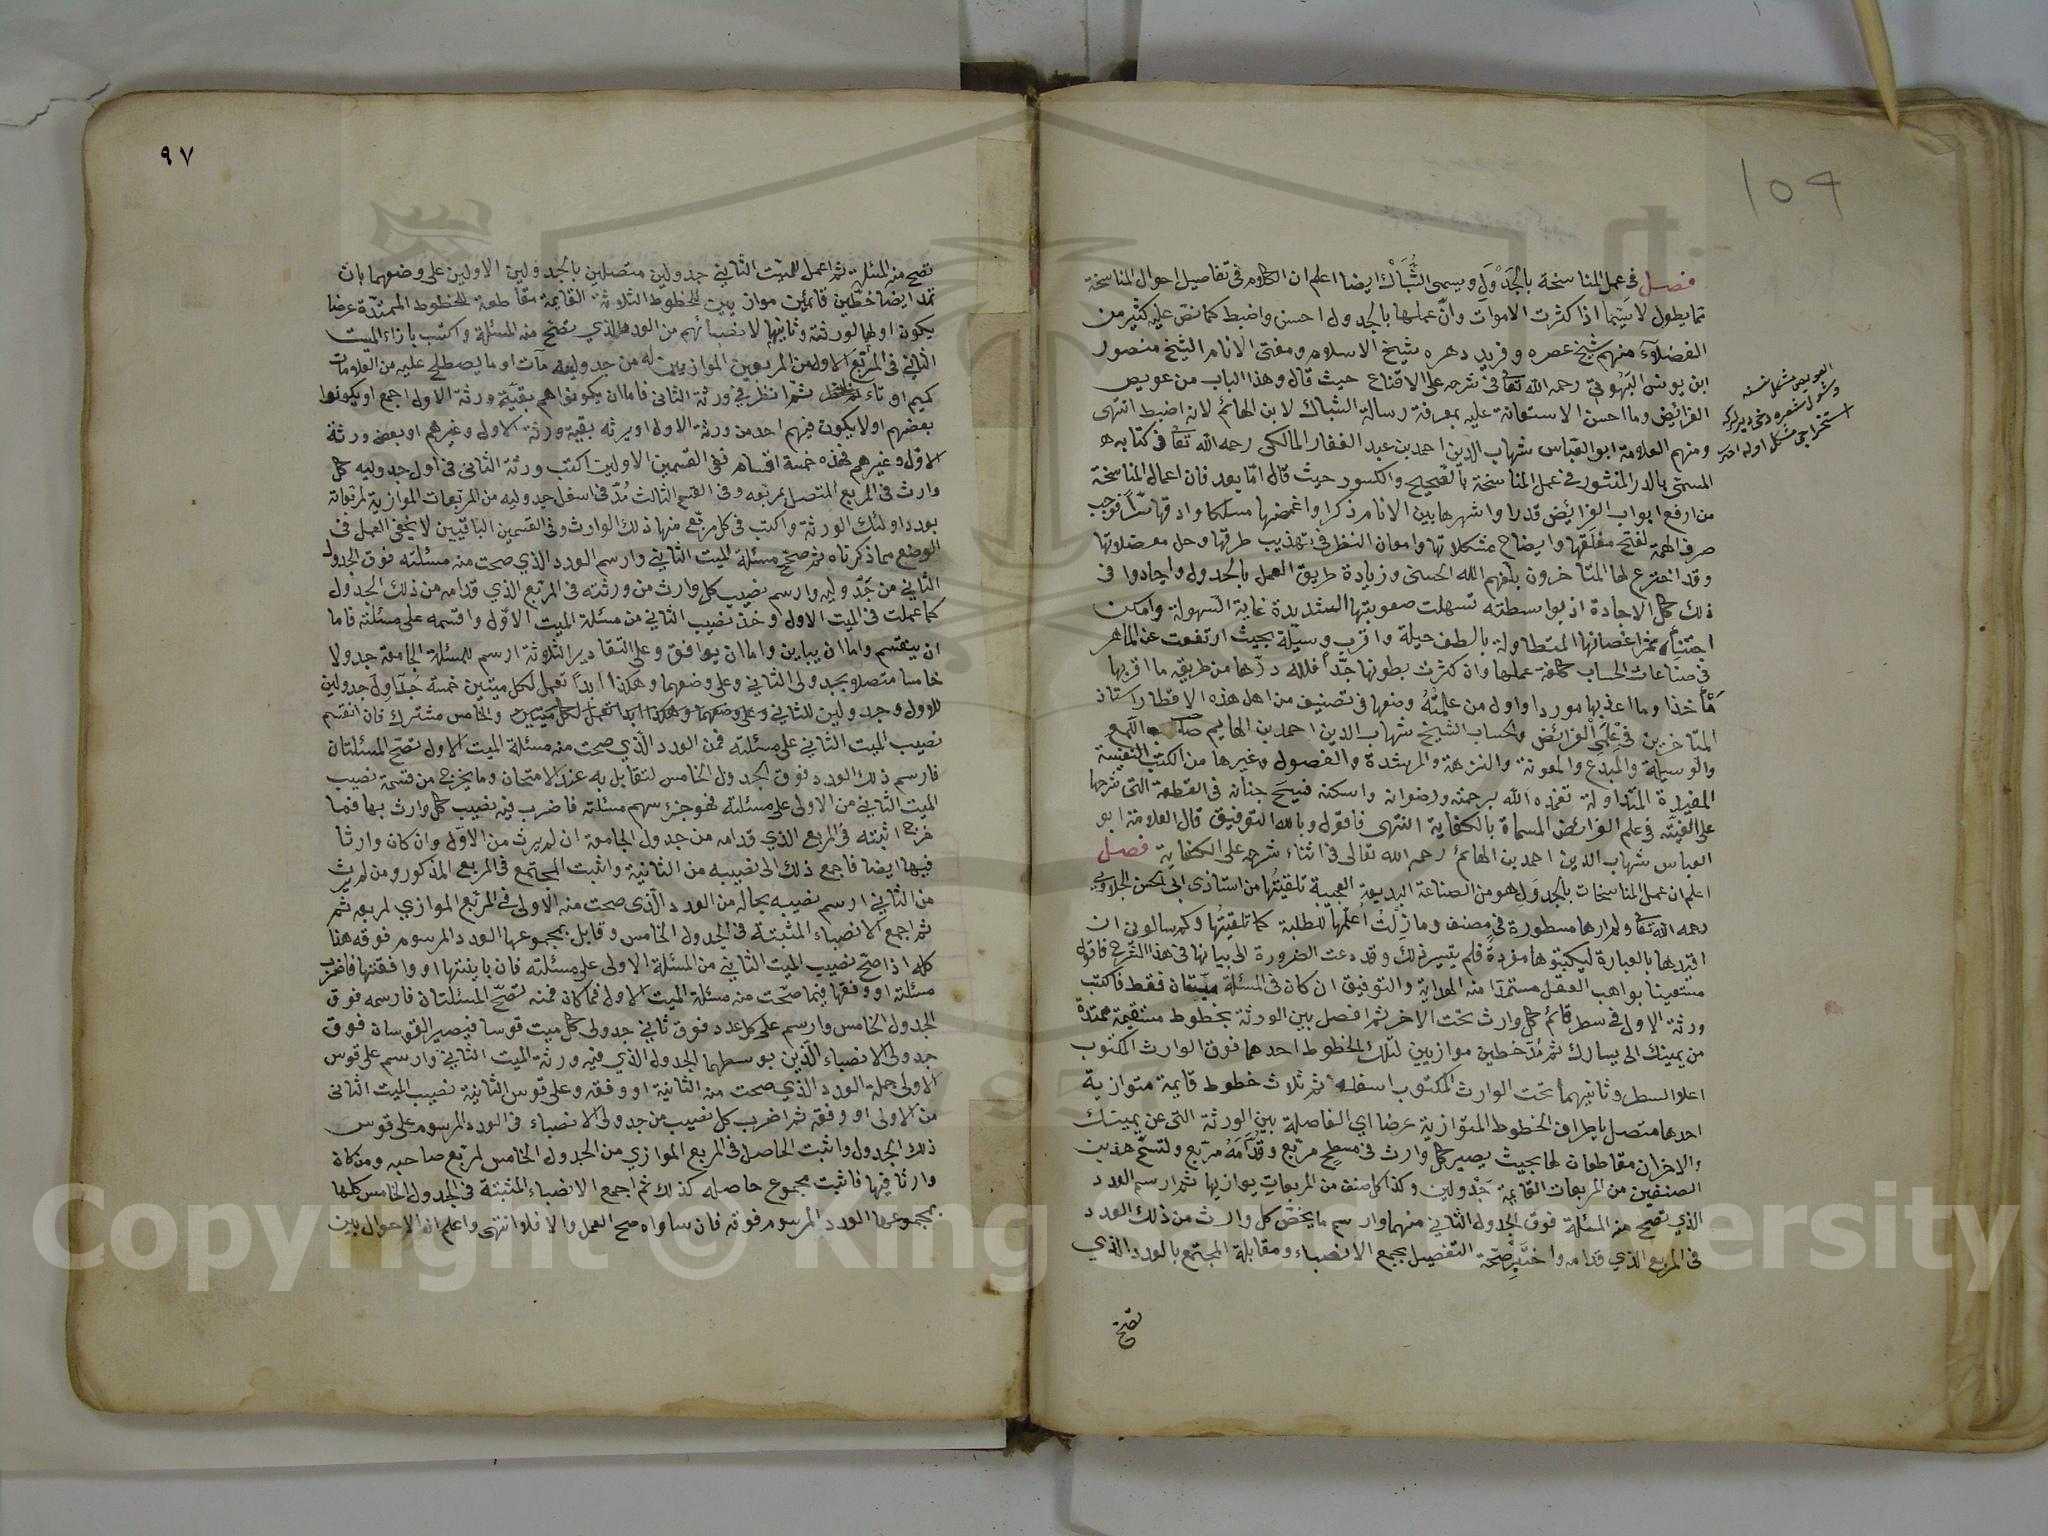 ١٥٩
فصل في عمل المناسخة بالجدول ويسمى الشباك ايضا اعلم ان الكلام في تفاصيل احوال المناسخة
مما يطول لا سيما اذا كثرت الاموات وان عملها بالجدول احسن واضبط كما نص عليه كثير من
الفضلاء منهم شيخ عصره وفريد دهره شيخ الاسلام ومفتى الانام الشيخ منصور
ابن يونس البهوتي رحمه الله تعا في شرحه على الاقناع حيث قال وهذا الباب من عويص
الفرائض وما احسن الاستعانة عليه بمعرفة رسالة الشباك لابن الهائم لانه اضبط انتهى
ومنهم العلامة ابو العباس شهاب الدين احمد بن عبد الغفار المالكي رحمه الله تعا في كتابه
المسمى بالدر المنثور في عمل المناسخة بالصحيح والكسور حيث قال اما بعد فان اعمال المناسخة
من ارفع ابواب الفرائض قدرا واشهرها بين الانام ذكرا واغمضها مسلكا وادقها سرا فوجب
صرف الهمة لفتح مغلقها وايضاح مشكلاتها وامعان النظر في تهذيب طرقها وحل معضلاتها
وقد اخترع لها المتأخرون بلغهم الله الحسنى وزيادة طريق العمل بالجدول واجادوا في
ذلك كل الاجادة اذ بواسطته تسهلت صعوبتها الشديدة غاية السهولة وامكن
اجتناء ثمر اغصانها المتطاولة بالطف حيلة واقرب وسيلة بحيث ارتفعت عن الماهر
في صناعات الحساب كلفة عملها وان كثرت بطونها جدا فلله درها من طريقه ما اقربها
مأخذا وما اعذبها موردا واول من علمته وضعها في تصنيف من اهل هذه الاقطار استاذ
المتأخرين في علمي الفرائض والحساب الشيخ شهاب الدين احمد بن الهايم صاحب اللمع
والوسيلة والمبدع والمعونة والنزهة والمرشدة والفصول وغيرها من الكتب النفيسة
المفيدة المتداولة تغمده الله برحمته ورضوانه واسكنه فسيح جنانه في القطعة التي شرحها
على الفيته في علم الفرائض المسماة بالكفاية انتهى فاقول وبالله التوفيق قال العلامة ابو
العباس شهاب الدين احمد بن الهائم رحمه الله تعالى في اثناء شرحه على الكفاية فصل
اعلم ان عمل المناسخات بالجدول هو من الصناعة البديعة العجيبة تلقيتها من استاذى ابي الحسن الجلاوي
رحمه الله تعا ولم ارها مسطورة في مصنف وما زلت اعلمها للطلبة كما تلقيتها وكم سالوني ان
اقيدها بالعبارة ليكتبوها مفردة فلم يتيسر ذلك وقد دعت الضرورة الى بيانها في هذا الشرح فاقول
مستعينا بواهب العقل مستمدا منه الهداية والتوفيق ان كان في المسئلة ميتان فقط فاكتب
ورثة الاول في سطر قائم كل وارث تحت الاخر ثم افصل بين الورثة بخطوط مستقيمة ممتدة
من يمينك الى يسارك ثم مد خطين موازيين لتلك الخطوط احدهما فوق الوارث المكتوب
اعلا السطر وثانيهما تحت الوارث المكتوب اسفله ثم ثلاث خطوط قايمة متوازية
احدها متصل باطراف الخطوط المتوازية عرضا اي الفاصلة بين الورثة التي عن يمينك
والاخران مقاطعان لها بحيث يصير كل وارث في مسطح مربع وقدامه مربع ولتسم هذين
الصنفين من المربعات القايمة جدولين وكذا كل صنف من المربعات يوازيها ثم ارسم العدد
الذي تصح منه المسئلة فوق الجدول الثاني منهما وارسم ما يخص كل وارث من ذلك العدد
في المربع الذي قدامه واختبر صحة التفصيل بجمع الانصباء ومقابلة المجتمع بالعدد الذي
تصح
٩٧
تصح منه المسئلة ثم اعمل للميت الثاني جدولين متصلين بالجدولين الاولين على وضعهما بان
تمد ايضا خطين قائمين موازيين للخطوط الثلاثة القايمة مقاطعة للخطوط الممتدة عرضا
يكون اولهما لورثته وثانيهما لانصبائهم من العدد الذي تصح منه المسئلة واكتب بازاء الميت
الثاني في المربع الاول من المربعين الموازيين له من جدوليه مات او ما يصطلح عليه من العلامات
كميم او تاء ثم انظر في ورثة الثاني فاما ان يكونوا هم بقية ورثة الاول اجمع او يكونوا
بعضهم او لا يكون فيهم احد من ورثة الاول او يرثه بقية ورثة الاول وغيرهم او بعض ورثة
الاول وغيرهم فهذه خمسة اقسام ففي القسمين الاولين اكتب ورثة الثاني في اول جدوليه كل
وارث في المربع المتصل بمربعه وفي القسم الثالث مد في اسفل جدوليه من المربعات الموازية لمربعاته
بعدد اولئك الورثة واكتب في كل مربع منها ذلك الوارث وفي القسمين الباقيين لا يخفى العمل في
الوضع مما ذكرناه ثم صحح مسئلة الميت الثاني وارسم العدد الذي صحت منه مسئلته فوق الجدول
الثاني من جدوليه وارسم نصيب كل وارث من ورثته في المربع الذي قدامه من ذلك الجدول
كما عملت في الميت الاول وخذ نصيب الثاني من مسئلة الميت الاول واقسمه على مسئلته فاما
ان ينقسم واما ان يباين واما ان يوافق وعلى التقادير الثلاثة ارسم للمسئلة الجامعة جدولا
خامسا متصلا بجدولى الثاني وعلى وضعهما وهكذا ابدا تعمل لكل ميتين خمسة جداول جدولين
للاول وجدولين للثاني وعلى وضعهما وهكذا ابدا تعمل لكل ميتين والخامس مشترك فان انقسم
نصيب الميت الثاني على مسئلته فمن العدد الذي صحت منه مسئلة الميت الاول تصح المسئلتان
فارسم ذلك العدد فوق الجدول الخامس لتقابل به عند الامتحان وما يخرج من قسمة نصيب
الميت الثاني من الاولى على مسئلته فهو جزء سهم مسئلته فاضرب فيه نصيب كل وارث بها فما
خرج اثبته في المربع الذي قدامه من جدول الجامعة ان لم يرث من الاول وان كان وارثا
فيها ايضا فاجمع ذلك الى نصيبه من الثانية واثبت المجتمع في المربع المذكور ومن لم يرث
من الثاني ارسم نصيبه بحاله من العدد الذي صحت منه الاولى في المربع الموازي لمربعه ثم
ثم اجمع الانصباء المثبتة في الجدول الخامس وقابل بمجموعها العدد المرسوم فوقه هذا
كله اذا صح نصيب الميت الثاني من المسئلة الاولى على مسئلته فان باينتها او وافقتها فاضرب
مسئلته او وفقها فيما صحت منه مسئلة الميت الاول فما كان فمنه تصح المسئلتان فارسمه فوق
الجدول الخامس وارسم على كل عدد فوق ثاني جدولى كل ميت قوسا فيصير القوسان فوق
جدولى الانصباء الذين يوسطهما الجدول الذي فيه ورثة الميت الثاني وارسم على قوس
الاولى جملة العدد الذي صحت منه الثانية او وفقه وعلى قوس الثانية نصيب الميت الثانى
من الاولى او وفقه ثم اضرب كل نصيب من جدولى الانصباء في العدد المرسوم على قوس
ذلك الجدول واثبت الحاصل في المربع الموازي من الجدول الخامس لمربع صاحبه ومن كان
وارثا فيها فاثبت مجموع حاصله كذلك ثم اجمع الانصباء المثبتة في الجدول الخامس كلها
بمجموعها العدد المرسوم فوقه فان ساواه صح العمل والا فلا انتهى واعلم ان الاحوال بين
Copyright © King Saud University